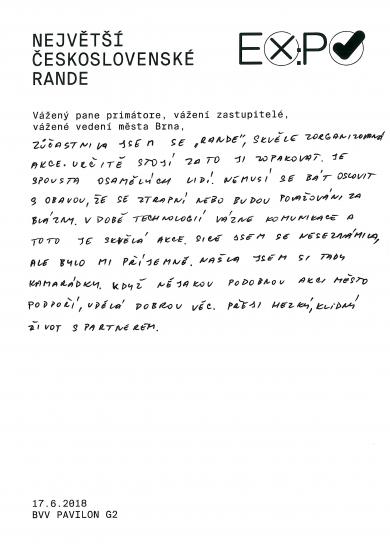 NEJVĚTŠÍ
ČESKOSLOVENSKÉ
RANDE
EX:PO
Vážený pane primátore, vážení zastupitelé,
vážené vedení města Brna,
ZÚČASTNILA JSEM SE „RANDE", SKVĚLE ZORGANIZOVANÁ
AKCE. URČITĚ STOJÍ ZA TO JI ZOPAKOVAT. JE
SPOUSTA OSAMĚLÝCH LIDÍ. NEMUSÍ SE BÁT OSLOVIT
S OBAVOU, ŽE SE ZTRAPNÍ NEBO BUDOU POVAŽOVÁNI ZA
BLÁZNY. V DOBĚ TECHNOLOGIÍ VÁZNE KOMUNIKACE A
TOTO JE SKVĚLÁ AKCE. SICE JSEM SE NESEZNÁMILA,
ALE BYLO MI PŘÍJEMNĚ. NAŠLA JSEM SI TADY
KAMARÁDKU. KDYŽ NĚJAKOU PODOBNOU AKCI MĚSTO
PODPOŘÍ, UDĚLÁ DOBROU VĚC. PŘEJI HEZKÝ, KLIDNÝ
ŽIVOT S PARTNEREM.
17.6.2018
BVV PAVILON G2